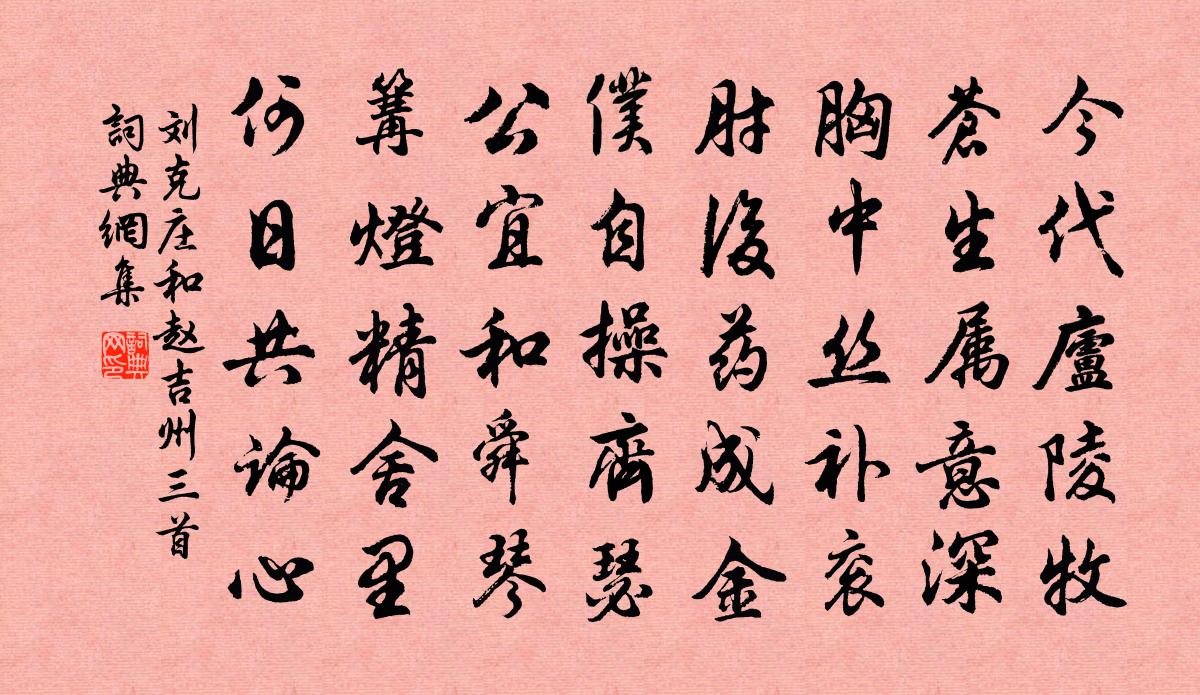 今代廬陵牧
蒼生属意深
胸中丝补衮
肘後药成金
僕自操齊瑟
公宜和舜琴
篝燈精舍里
何日共論心
刘克庄和赵吉州三首
詞典網集
詞典
网印